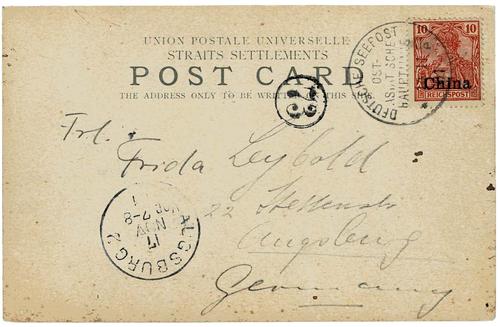 UNION POSTALE UNIVERSELLE
STRAITS SETTLEMENTS
POST CARD
THE ADDRESS ONLY TO BE WRITTEN ON THIS SIDE
DEUTSCHE SEEPOST
OST-
HAUPTLINIE
10 10
China
REICHSPOST
Frl.
Frida Leybold
22
Augsburg
Germany
AUGSBURG 2
17
NOV
7-8